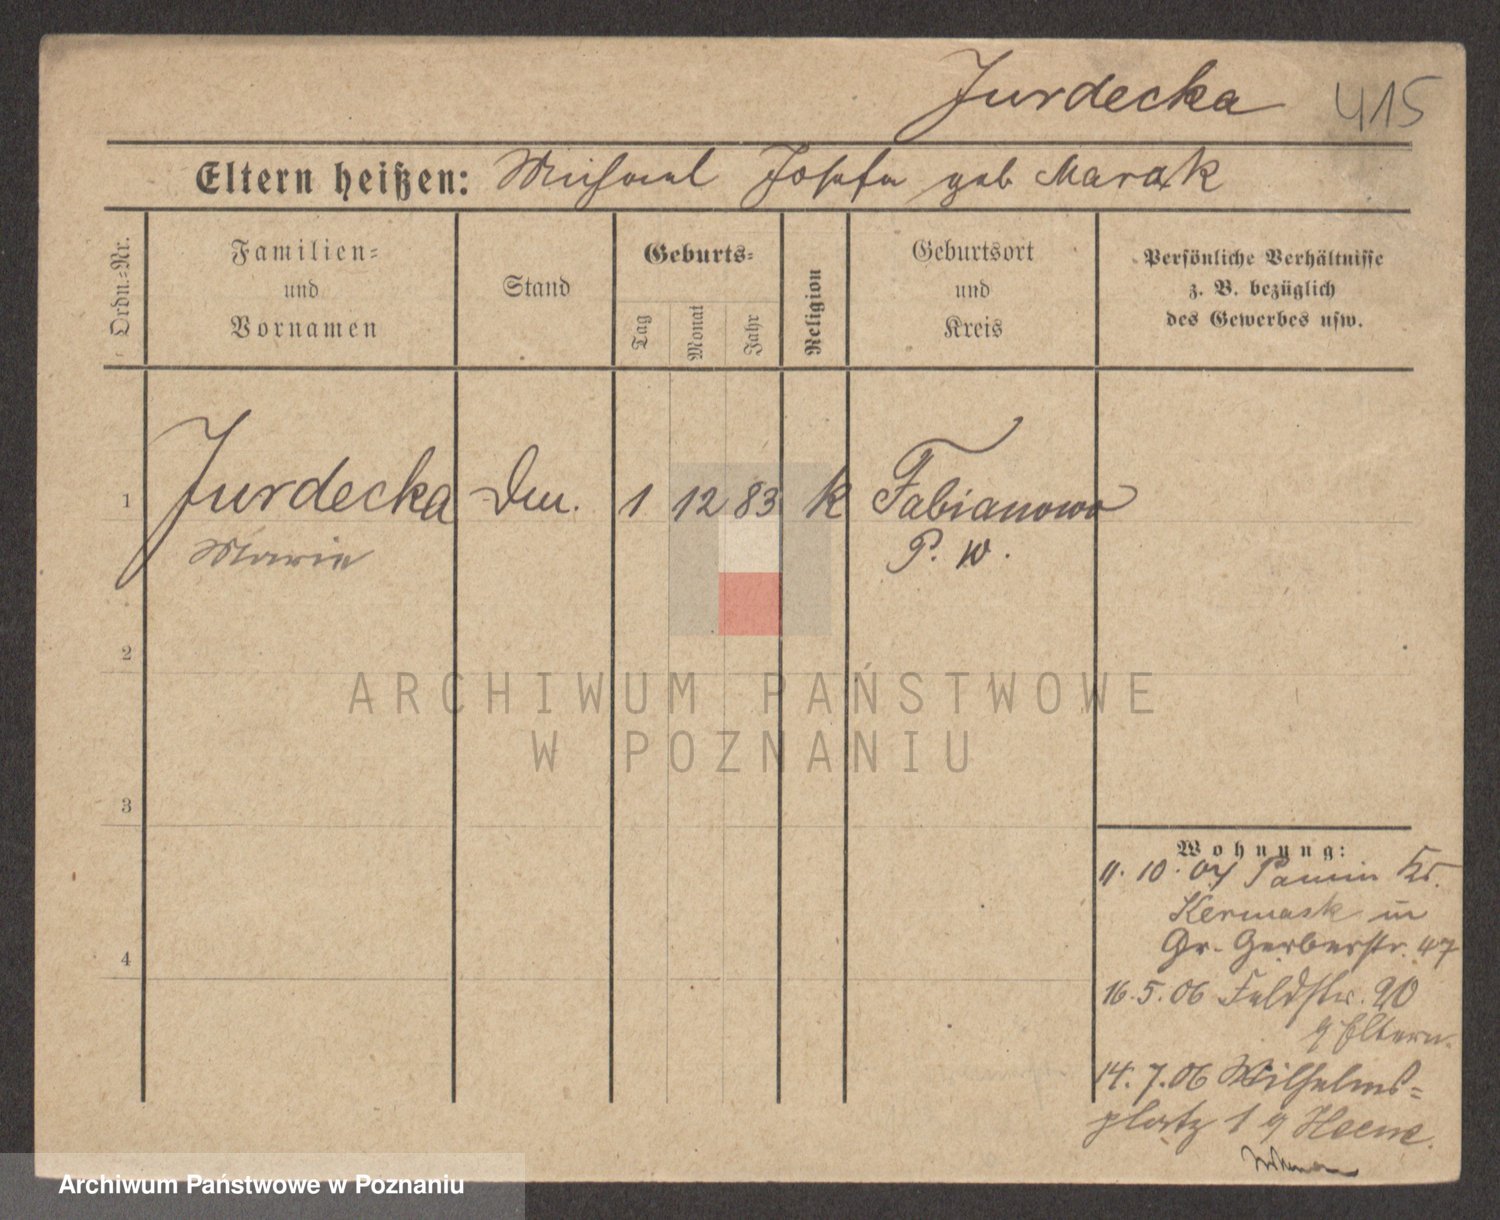 Jurdecka 415
Eltern heißen: Michael Josefa geb Marak
Ordn.=Nr.
Familien=
und
Vornamen
Stand
Geburts=
Tag
Monat
Jahr
Religion
Geburtsort
und
Kreis
Persönliche Verhältnisse
z. B. bezüglich
des Gewerbes usw.
1 Jurdecka 1 12 83 k Fabianowo
Marie P. W.
2
3
4
Wohnung:
11. 10. 04
in
Gr. Gerberstr. 47
16. 5. 06 Feldstr. 20
Eltern.
14. 7. 06 Wilhelms=
platz 1
ARCHIWUM PAŃSTWOWE
W POZNANIU
Archiwum Państwowe w Poznaniu